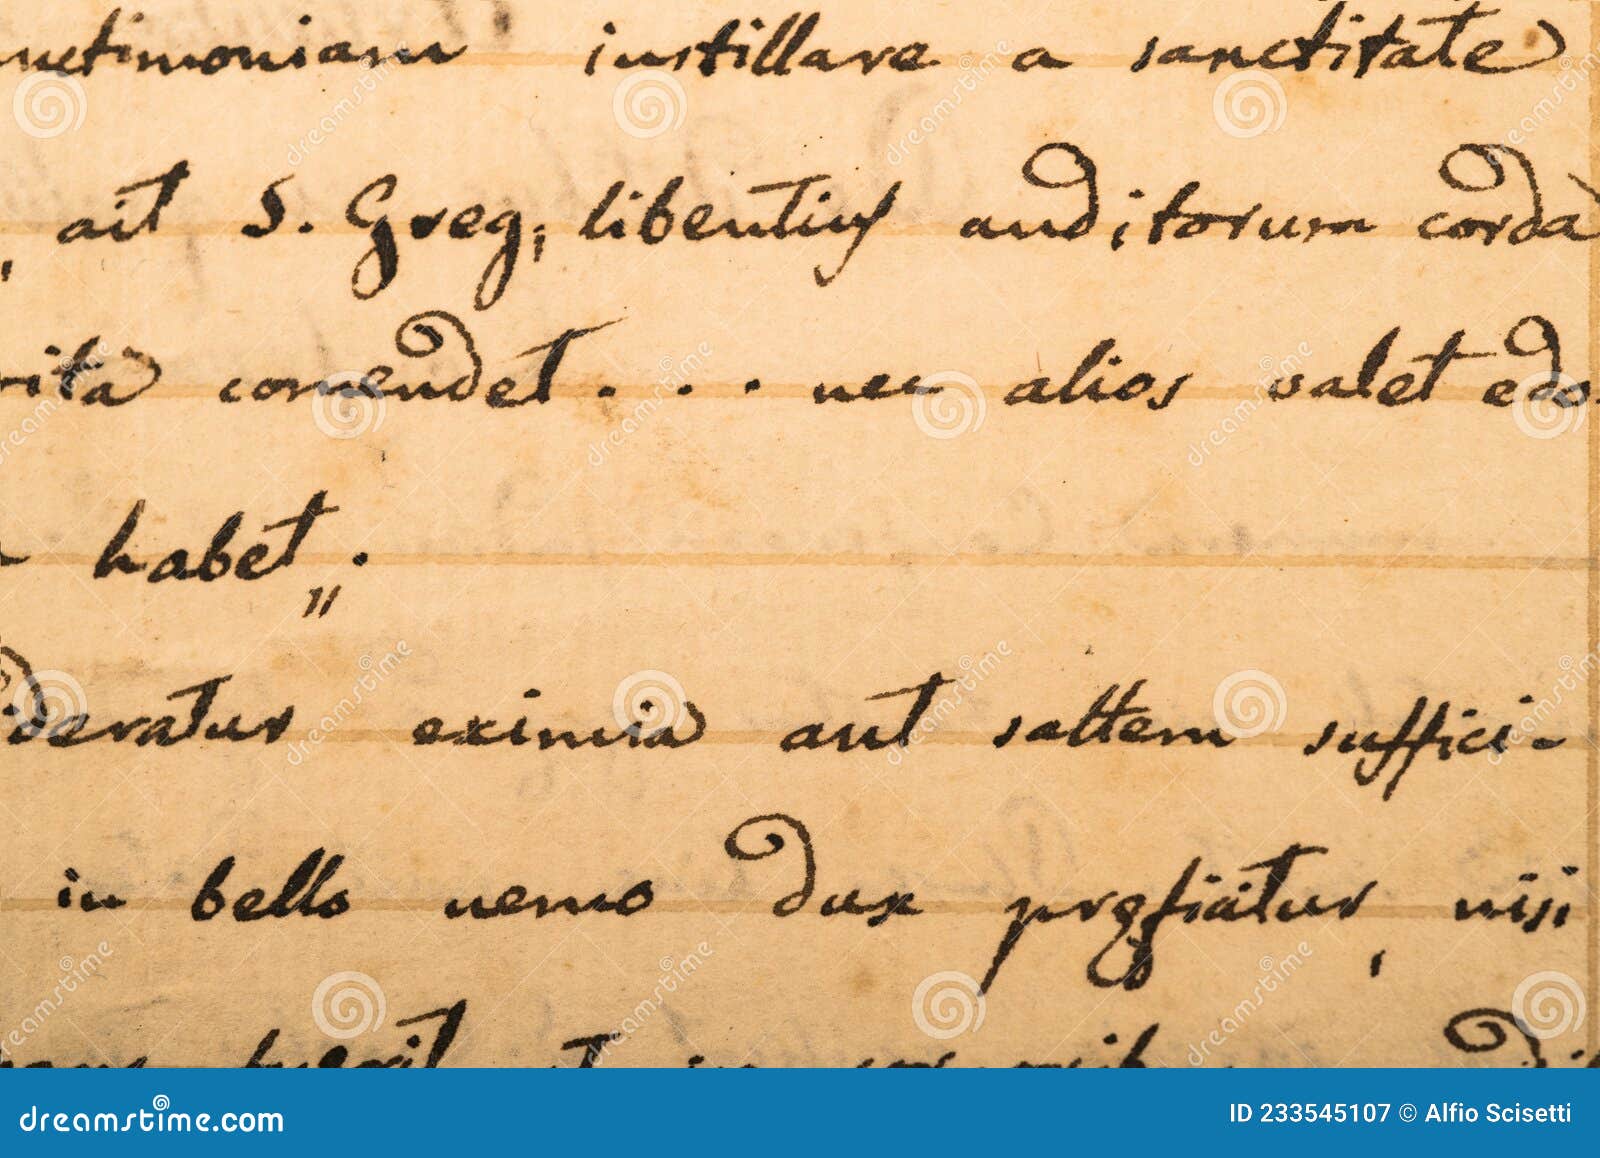 nctimoniam instillare a sanctitate
ait S. Greg; libentius auditorum corda
vita comendet . . . nec alios valet edo-
habet„.
deratur eximia aut saltem suffici-
in bello nemo dux pręficiatur, nisi
dreamstime.com ID 233545107 © Alfio Scisetti